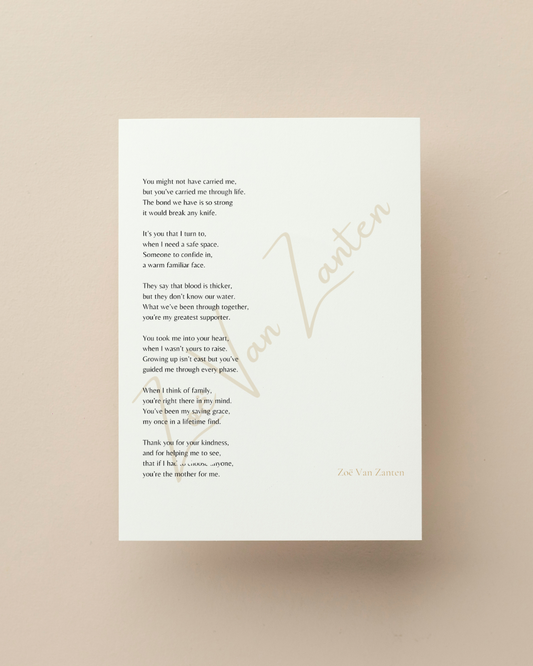 You might not have carried me,
but you've carried me through life.
The bond we have is so strong
it would break any knife.
It's you that I turn to,
when I need a safe space.
Someone to confide in,
a warm familiar face.
They say that blood is thicker,
but they don't know our water.
What we've been through together,
you're my greatest supporter.
You took me into your heart,
when I wasn't yours to raise.
Growing up isn't east but you've
guided me through every phase.
When I think of family,
you're right there in my mind.
You've been my saving grace,
my once in a lifetime find.
Thank you for your kindness,
and for helping me to see,
that if I had to choose anyone,
you're the mother for me.
Zoë Van Zanten
Zoë Van Zanten